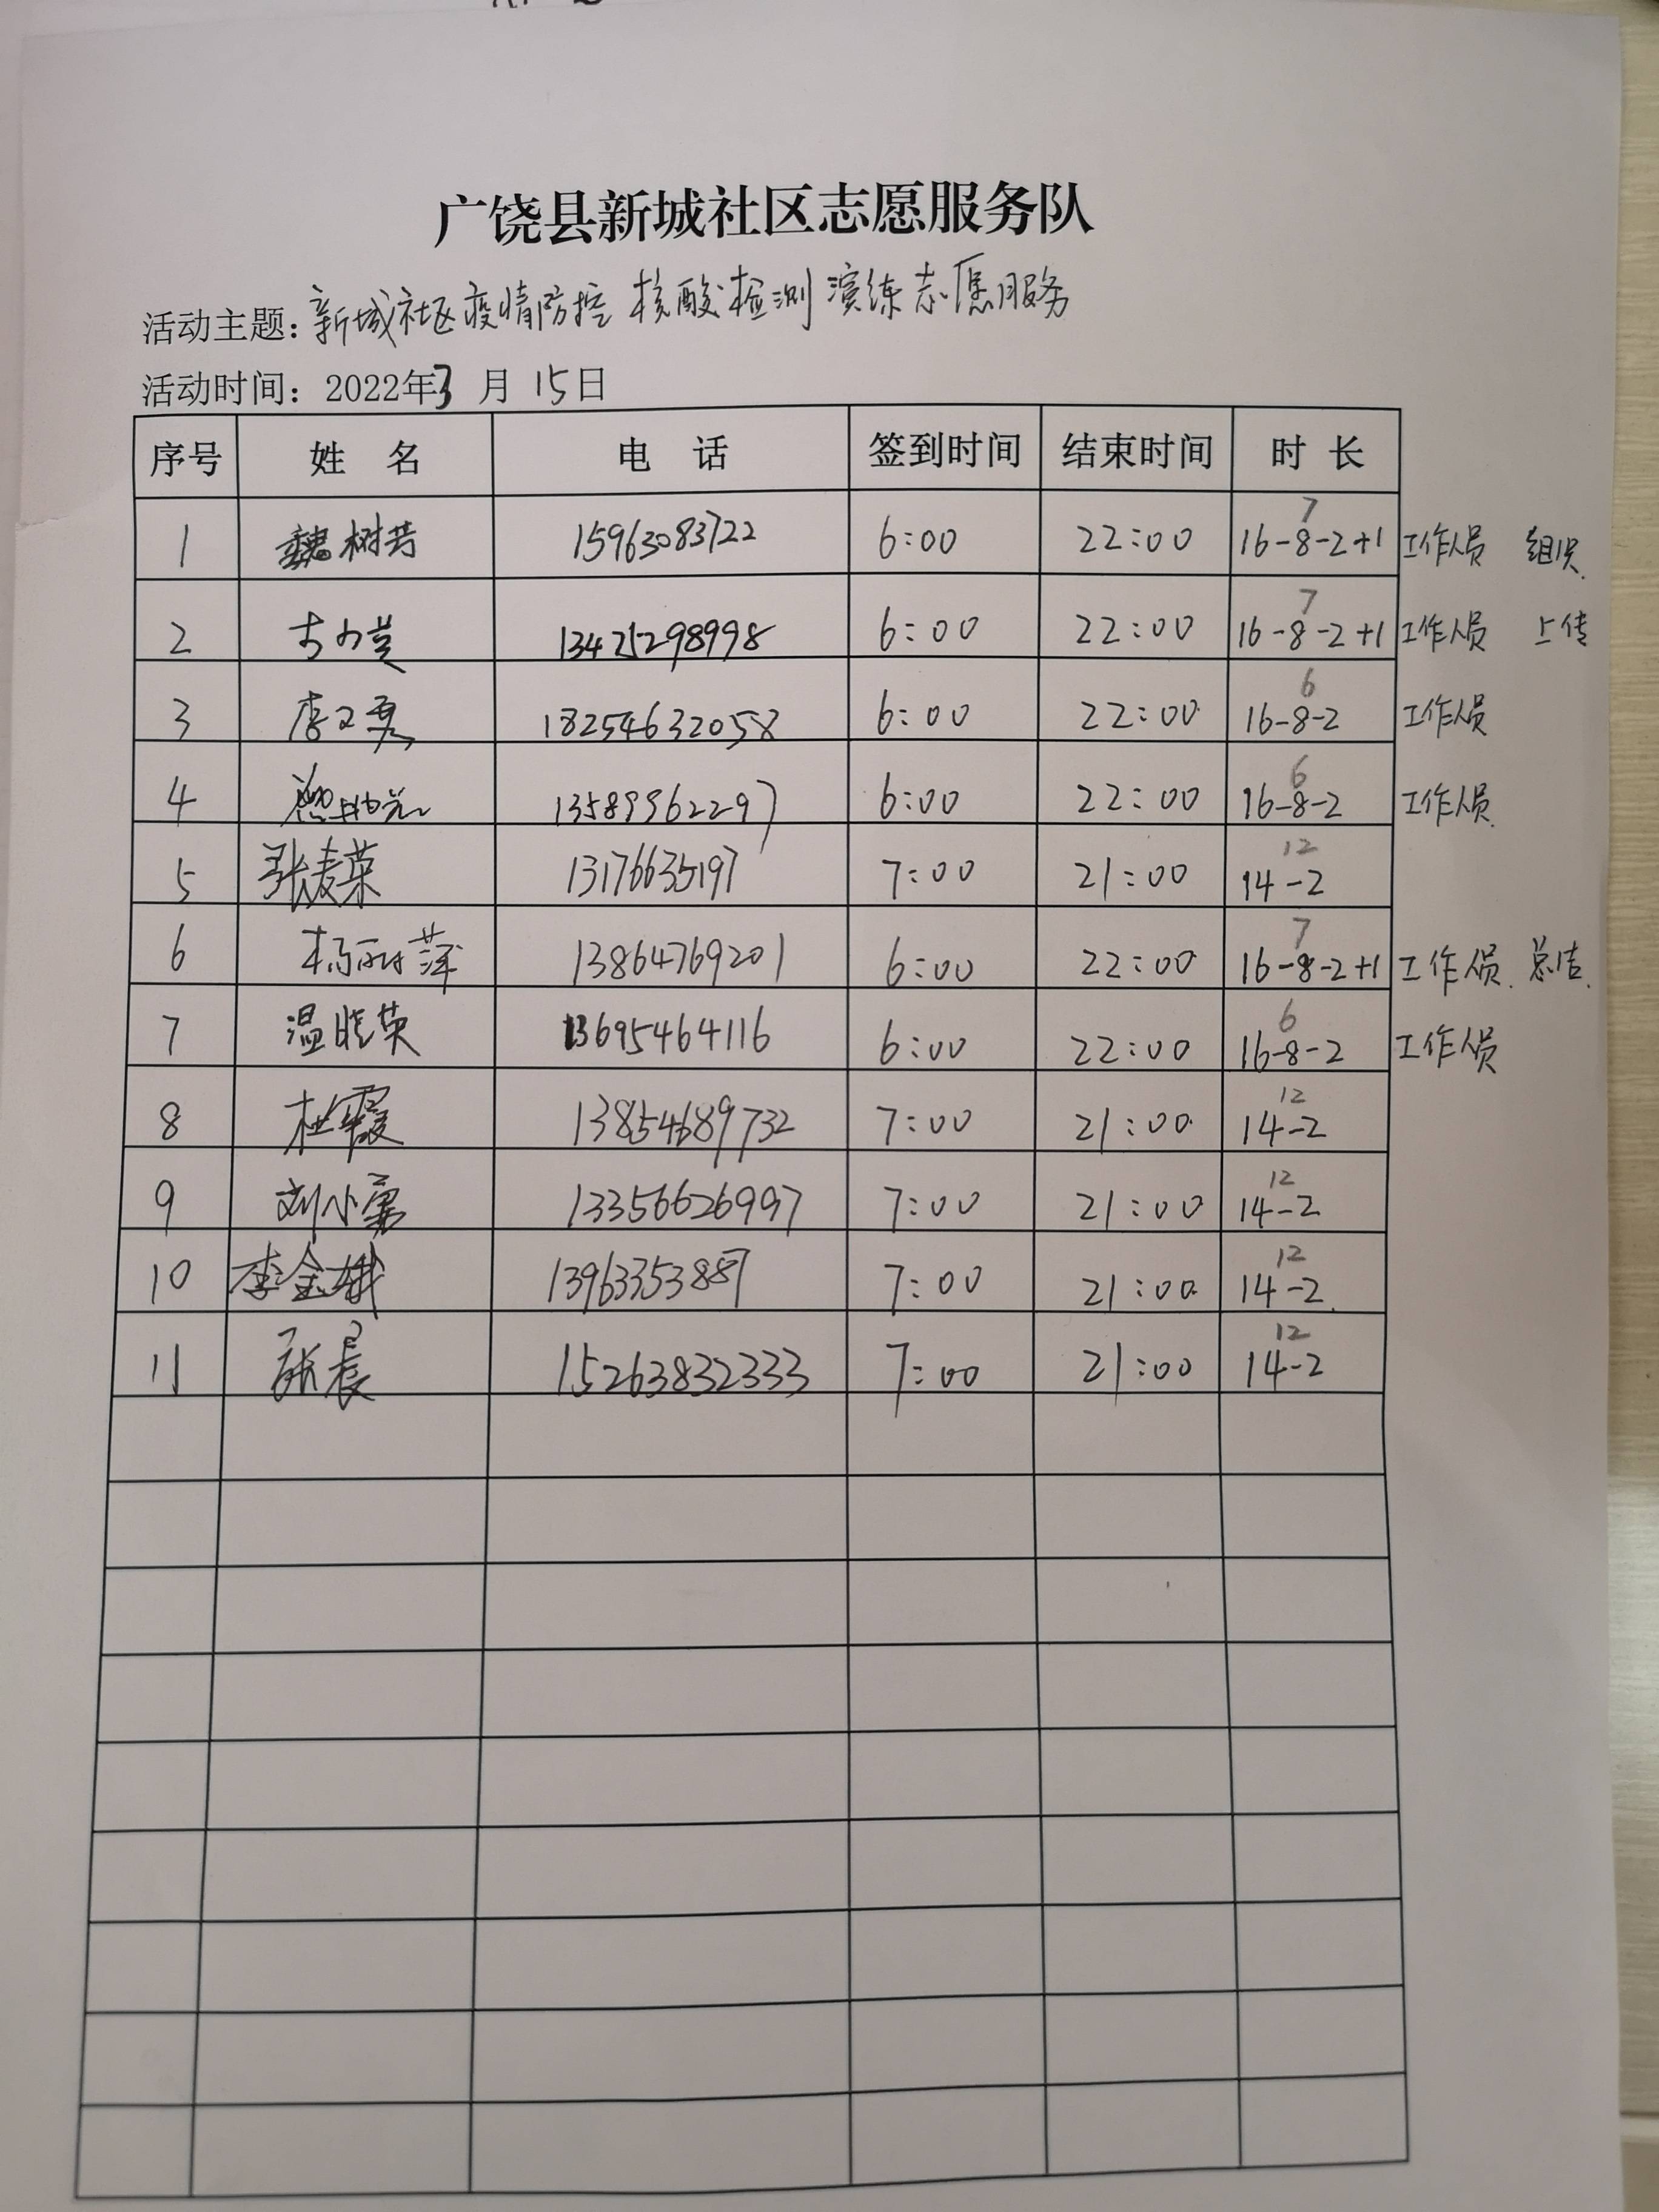 广饶县新城社区志愿服务队
活动主题：新城社区疫情防控 核酸检测演练志愿服务
活动时间：2022年3月15日
序号 姓 名 电 话 签到时间 结束时间 时 长
7
1 魏树芳 15963083722 6:00 22:00 16-8-2+1 工作人员 组织.
7
2 13425298998 6:00 22:00 16-8-2+1 工作人员 上传
6
3 李 18254632058 6:00 22:00 16-8-2 工作人员
6
4 13589962297 6:00 22:00 16-8-2 工作人员.
12
5 张麦荣 13176635197 7:00 21:00 14-2
7
6 杨丽萍 13864769201 6:00 22:00 16-8-2+1 工作人员. 总结.
6
7 温晓英 13695464116 6:00 22:00 16-8-2 工作人员
12
8 杜霞 13854689732 7:00 21:00 14-2
12
9 刘小勇 13356626997 7:00 21:00 14-2
12
10 李金娥 7:00 21:00 14-2.
12
11 张晨 15263832333 7:00 21:00 14-2